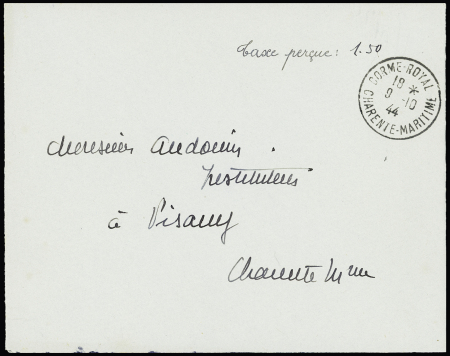 taxe perçue : 1.50
CORME-ROYAL
18 *
9 -10
44
CHARENTE-MARITIME
Monsieur Audouin
Instituteur
à Pisany
Charente Mme